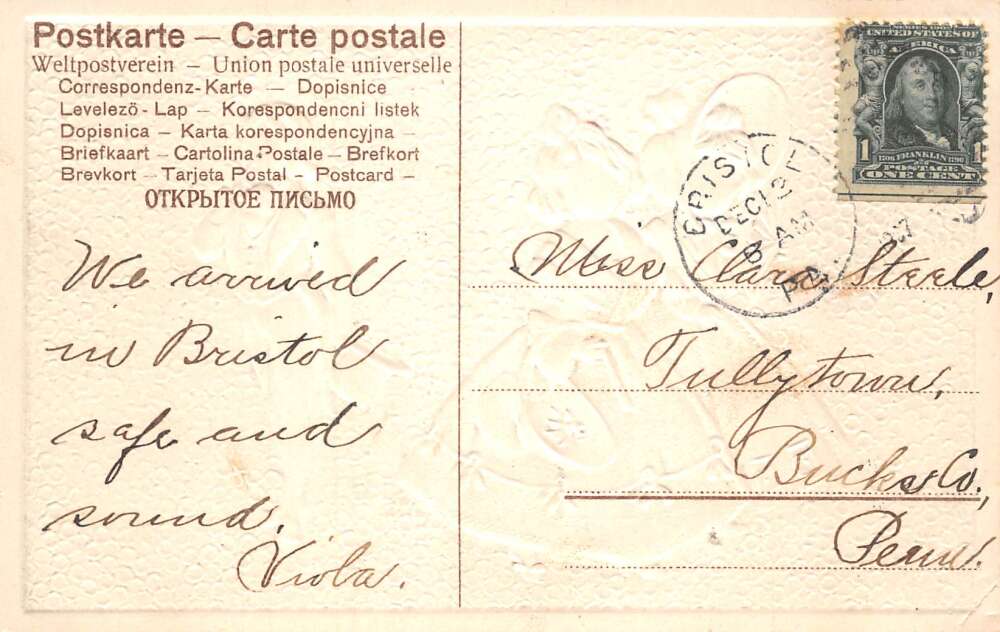 Postkarte — Carte postale
Weltpostverein — Union postale universelle
Correspondenz-Karte — Dopisnice
Levelező-Lap — Korespondencni listek
Dopisnica — Karta korespondencyjna —
Briefkaart — Cartolina Postale — Brefkort
Brevkort — Tarjeta Postal — Postcard —
ОТКРЫТОЕ ПИСЬМО
We arrived
in Bristol
safe and
sound.
Viola.
UNITED STATES OF
AMERICA
1 1
1706 FRANKLIN 1790
POSTAGE
ONE CENT
BRISTOL
DEC 12
6 AM
PA.
Miss Clara Steele,
Tullytown,
Bucks Co.,
Penn.